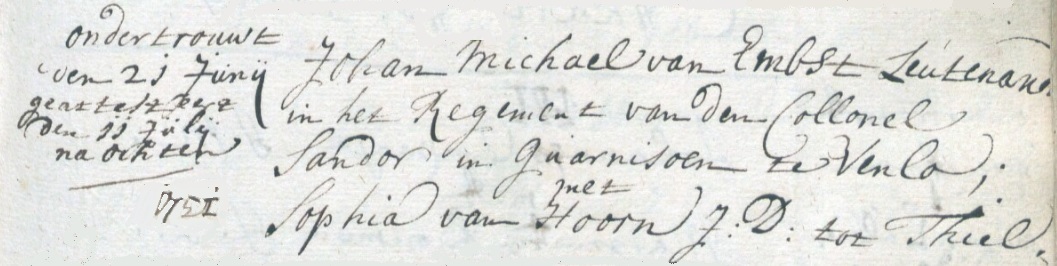 ondertrouwt
den 21 Junij
geattesteert
den 11 Julij
na ochten
1751
Johan Michael van Embst Leutenand
in het Regement van den Collonel
Sandor in Guarnisoen te Venlo;
met
Sophia van Hoorn J: D: tot Thiel.